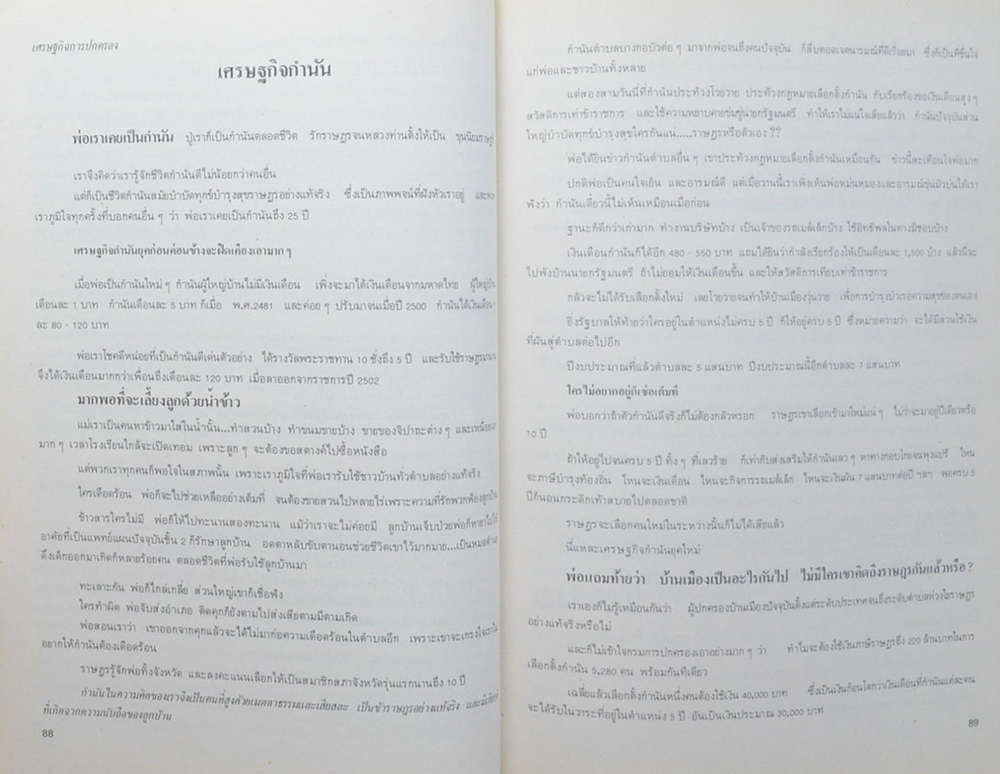 เศรษฐกิจการปกครอง
เศรษฐกิจกำนัน
พ่อเราเคยเป็นกำนัน ปู่เราก็เป็นกำนันตลอดชีวิต รักราษฎรจนหลวงท่านตั้งให้เป็น ขุนนิยมราษฎร์
เราจึงคิดว่าเรารู้จักชีวิตกำนันดีไม่น้อยกว่าคนอื่น
แต่ก็เป็นชีวิตกำนันสมัยบำบัดทุกข์บำรุงสุขราษฎรอย่างแท้จริง ซึ่งเป็นภาพพจน์ที่ฝังหัวเราอยู่ และพวก
เราภูมิใจทุกครั้งที่บอกคนอื่น ๆ ว่า พ่อเราเคยเป็นกำนันถึง 25 ปี
เศรษฐกิจกำนันยุคก่อนค่อนข้างจะฝืดเคืองเอามาก ๆ
เมื่อพ่อเป็นกำนันใหม่ ๆ กำนันผู้ใหญ่บ้านไม่มีเงินเดือน เพิ่งจะมาได้เงินเดือนจากมหาดไทย ผู้ใหญ่บ้าน
เดือนละ 1 บาท กำนันเดือนละ 5 บาท ก็เมื่อ พ.ศ.2481 และค่อย ๆ ปรับมาจนเมื่อปี 2500 กำนันได้เงินเดือน
ละ 80 - 120 บาท
พ่อเราโชคดีหน่อยที่เป็นกำนันดีเด่นตัวอย่าง ได้รางวัลพระราชทาน 10 ชั่งถึง 5 ปี และรับใช้ราษฎรมานาน
จึงได้เงินเดือนมากกว่าเพื่อนถึงเดือนละ 120 บาท เมื่อลาออกจากราชการปี 2502
มากพอที่จะเลี้ยงลูกด้วยน้ำข้าว
แม่เราเป็นคนหาข้าวมาใส่ในน้ำนั้น...ทำสวนบ้าง ทำขนมขายบ้าง ขายของจิปาถะต่าง ๆ และเหนื่อย
มาก ๆ เวลาโรงเรียนใกล้จะเปิดเทอม เพราะลูก ๆ จะต้องขอสตางค์ไปซื้อหนังสือ
แต่พวกเราทุกคนก็พอใจในสภาพนั้น เพราะเราภูมิใจที่พ่อเรารับใช้ชาวบ้านทั่วตำบลอย่างแท้จริง
ใครเดือดร้อน พ่อก็จะไปช่วยเหลืออย่างเต็มที่ จนต้องขายสวนไปหลายไร่เพราะความที่รักพวกพ้องลูกบ้าน
ข้าวสารใครไม่มี พ่อก็ให้ไปทะนานสองทะนาน แม้ว่าเราจะไม่ค่อยมี ลูกบ้านเจ็บป่วยพ่อก็หายาไปให้
อาศัยที่เป็นแพทย์แผนปัจจุบันชั้น 2 ก็รักษาลูกบ้าน อดตาหลับขับตานอนช่วยชีวิตเขาไว้มากมาย...เป็นหมอตำแย
ดึงเด็กออกมาเกิดก็หลายร้อยคน ตลอดชีวิตที่พ่อรับใช้ลูกบ้านมา
ทะเลาะกัน พ่อก็ไกล่เกลี่ย ส่วนใหญ่เขาก็เชื่อฟัง
ใครทำผิด พ่อจับส่งอำเภอ ติดคุกก็ยังตามไปส่งเสียตามมีตามเกิด
พ่อสอนเราว่า เขาออกจากคุกแล้วจะได้ไม่มาก่อความเดือดร้อนในตำบลอีก เพราะเขาจะเกรงใจเราไม่
อยากให้กำนันต้องเดือดร้อน
ราษฎรรู้จักพ่อทั้งจังหวัด และลงคะแนนเลือกให้เป็นสมาชิกสภาจังหวัดรุ่นแรกนานถึง 10 ปี
กำนันในความคิดของเราจึงเป็นคนที่สูงด้วยเมตตาธรรมและเสียสละ เป็นข้าราษฎรอย่างแท้จริง และมี
ที่เกิดจากความนับถือของลูกบ้าน
88
กำนันตำบลบางกอบัวต่อ ๆ มาจากพ่อจนถึงคนปัจจุบัน ก็สืบทอดเจตนารมณ์ที่ดีเรื่อยมา ซึ่งก็เป็นที่ชื่นใจ
แก่พ่อและชาวบ้านทั้งหลาย
แต่สองสามวันนี้ที่กำนันประท้วงโวยวาย ประท้วงกฎหมายเลือกตั้งกำนัน กับเรียกร้องขอเงินเดือนสูง ๆ
สวัสดิการเท่าข้าราชการ และใช้ความหยาบคายข่มขู่นายกรัฐมนตรี ทำให้เราไม่แน่ใจเสียแล้วว่า กำนันปัจจุบันส่วน
ใหญ่บำบัดทุกข์บำรุงสุขใครกันแน่.....ราษฎรหรือตัวเอง ??
พ่อได้ยินข่าวกำนันตำบลอื่น ๆ เขาประท้วงกฎหมายเลือกตั้งกำนันเหมือนกัน ข่าวนี้สะเทือนใจพ่อมาก
ปกติพ่อเป็นคนใจเย็น และอารมณ์ดี แต่เมื่อวานนี้เราเพิ่งเห็นพ่อหม่นหมองและอารมณ์ขุ่นมัวบ่นให้เรา
ฟังว่า กำนันเดี๋ยวนี้ไม่เห็นเหมือนเมื่อก่อน
ฐานะก็ดีกว่าเก่ามาก ทำงานบริษัทบ้าง เป็นเจ้าของรถเมล์เล็กบ้าง ใช้อิทธิพลในทางมิชอบบ้าง
เงินเดือนกำนันก็ได้อีก 480 - 550 บาท แถมได้ยินว่ากำลังเรียกร้องให้เป็นเดือนละ 1,500 บ้าง แล้วนี่จะ
ไปพังบ้านนายกรัฐมนตรี ถ้าไม่ยอมให้เงินเดือนขึ้น และให้สวัสดิการเทียบเท่าข้าราชการ
กลัวจะไม่ได้รับเลือกตั้งใหม่ เลยโวยวายจนทำให้บ้านเมืองวุ่นวาย เพื่อการบำรุงบำเรอความสุขของตนเอง
ยิ่งรัฐบาลให้ท้ายว่าใครอยู่ในตำแหน่งไม่ครบ 5 ปี ก็ให้อยู่ครบ 5 ปี ซึ่งหมายความว่า จะได้มีส่วนใช้เงิน
ที่ผันสู่ตำบลต่อไปอีก
ปีงบประมาณที่แล้วตำบลละ 5 แสนบาท ปีงบประมาณนี้อีกตำบลละ 7 แสนบาท
ใครไม่อยากอยู่ก็เซ่อเต็มที
พ่อบอกว่าถ้าตัวกำนันดีจริงก็ไม่ต้องกลัวหรอก ราษฎรเขาเลือกเข้ามาใหม่แน่ ๆ ไม่ว่าจะมาอยู่ปีเดียวหรือ
10 ปี
ถ้าให้อยู่ไปจนครบ 5 ปี ทั้ง ๆ ที่เลวร้าย ก็เท่ากับส่งเสริมให้กำนันเลว ๆ หาทางกอบโกยจนพุงแปร้ ไหน
จะภาษีบำรุงท้องถิ่น ไหนจะเงินเดือน ไหนจะกิจการรถเมล์เล็ก ไหนจะเงินผัน 7 แสนบาทต่อปี ฯลฯ พอครบ 5
ปีก็นอนกระดิกเท้าสบายไปตลอดชาติ
ราษฎรจะเลือกคนใหม่ในระหว่างนั้นก็ไม่ได้เสียแล้ว
นี่แหละเศรษฐกิจกำนันยุคใหม่
พ่อแถมท้ายว่า บ้านเมืองเป็นอะไรกันไป ไม่มีใครเขาคิดถึงราษฎรกันแล้วหรือ?
เราเองก็ไม่รู้เหมือนกันว่า ผู้ปกครองบ้านเมืองปัจจุบันตั้งแต่ระดับประเทศจนถึงระดับตำบลห่วงใยราษฎร
อย่างแท้จริงหรือไม่
และก็ไม่เข้าใจกรมการปกครองเอาอย่างมาก ๆ ว่า ทำไมจะต้องใช้เงินภาษีราษฎรถึง 220 ล้านบาทในการ
เลือกตั้งกำนัน 5,280 คน พร้อมกันทีเดียว
เฉลี่ยแล้วเลือกตั้งกำนันหนึ่งคนต้องใช้เงิน 40,000 บาท ซึ่งเป็นเงินก้อนโตกว่าเงินเดือนที่กำนันแต่ละคน
จะได้รับในวาระที่อยู่ในตำแหน่ง 5 ปี อันเป็นเงินประมาณ 30,000 บาท
89